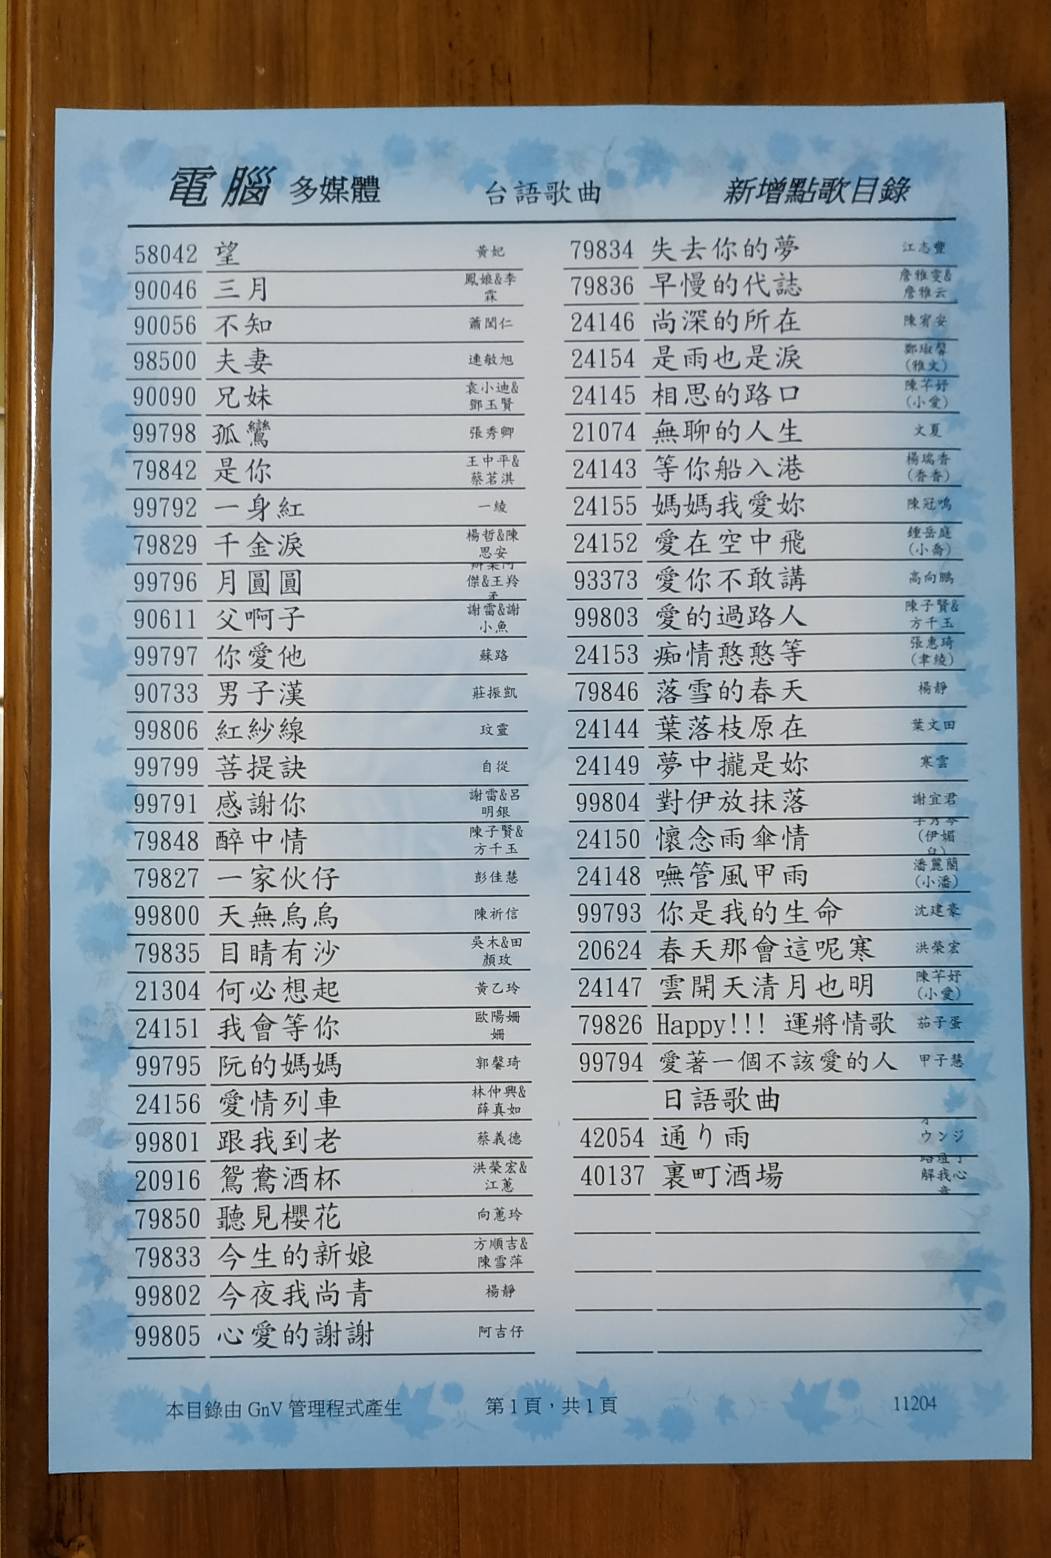 電腦 多媒體 台語歌曲 新增點歌目錄
58042 望 黃妃
90046 三月 鳳娘&李霖
90056 不知 蕭閔仁
98500 夫妻 連敏旭
90090 兄妹 袁小迪&鄧玉賢
99798 孤鸞 張秀卿
79842 是你 王中平&蔡茗淇
99792 一身紅 一綾
79829 千金淚 楊哲&陳思安
99796 月圓圓 傑&王羚
90611 父啊子 謝雷&謝小魚
99797 你愛他 蘇路
90733 男子漢 莊振凱
99806 紅紗線 玟靈
99799 菩提訣 自從
99791 感謝你 謝雷&呂明銀
79848 醉中情 陳子賢&方千玉
79827 一家伙仔 彭佳慧
99800 天無烏烏 陳祈信
79835 目睛有沙 吳木&田顏玫
21304 何必想起 黃乙玲
24151 我會等你 歐陽姍姍
99795 阮的媽媽 郭馨琦
24156 愛情列車 林仲興&薛真如
99801 跟我到老 蔡義德
20916 鴛鴦酒杯 洪榮宏&江蕙
79850 聽見櫻花 向蕙玲
79833 今生的新娘 方順吉&陳雪萍
99802 今夜我尚青 楊靜
99805 心愛的謝謝 阿吉仔
79834 失去你的夢 江志豐
79836 早慢的代誌 詹雅雯&詹雅云
24146 尚深的所在 陳宥安
24154 是雨也是淚 鄭淑馨(雅文)
24145 相思的路口 陳芊妤(小愛)
21074 無聊的人生 文夏
24143 等你船入港 楊瑞香(香香)
24155 媽媽我愛妳 陳冠鳴
24152 愛在空中飛 鍾岳庭(小喬)
93373 愛你不敢講 高向鵬
99803 愛的過路人 陳子賢&方千玉
24153 痴情憨憨等 張惠琦(聿綾)
79846 落雪的春天 楊靜
24144 葉落枝原在 葉文田
24149 夢中攏是妳 寒雲
99804 對伊放抹落 謝宜君
24150 懷念雨傘情 (伊媚
24148 嘸管風甲雨 潘麗蘭(小潘)
99793 你是我的生命 沈建豪
20624 春天那會這呢寒 洪榮宏
24147 雲開天清月也明 陳芊妤(小愛)
79826 Happy!!! 運將情歌 茄子蛋
99794 愛著一個不該愛的人 甲子慧
日語歌曲
42054 通り雨 ウンジ
40137 裏町酒場 解我心
本目錄由 GnV 管理程式產生 第1頁，共1頁 11204